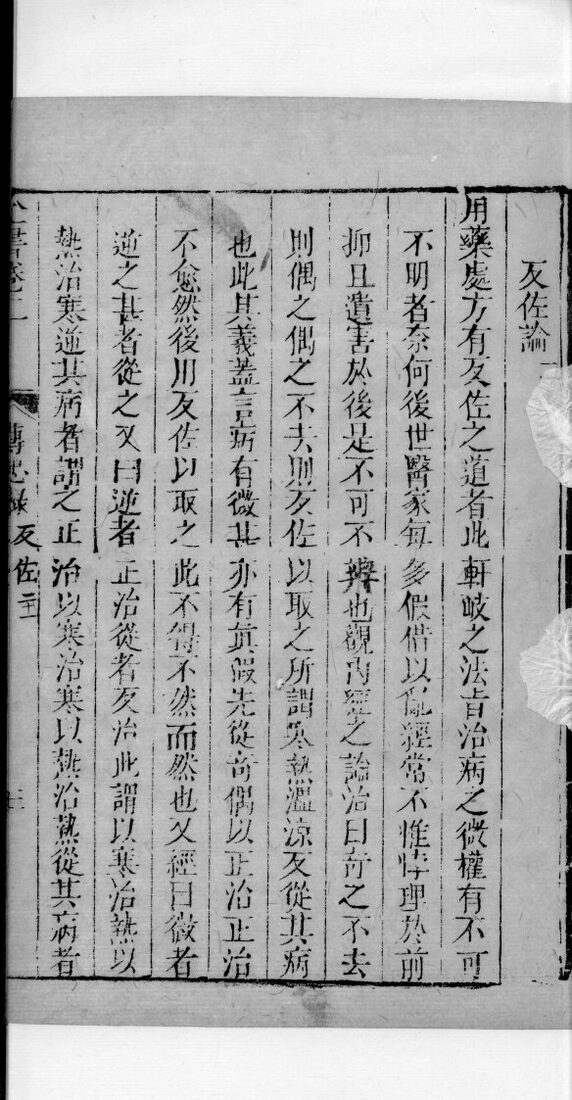 反佐論
用藥處方有反佐之道者此軒岐之法旨治病之微權有不可
不明者奈何後世醫家每多假借以亂經常不惟悖理於前
抑且遺害於後是不可不辨也觀內經之論治曰奇之不去
則偶之偶之不去則反佐以取之所謂寒熱溫涼反從其病
也此其義蓋言病有微甚亦有真假先從奇偶以正治正治
不愈然後用反佐以取之此不得不然而然也又經曰微者
逆之甚者從之又曰逆者正治從者反治此謂以寒治熱以
熱治寒逆其病者謂之正治以寒治寒以熱治熱從其病者
全書卷二 傳忠錄 反佐二十一